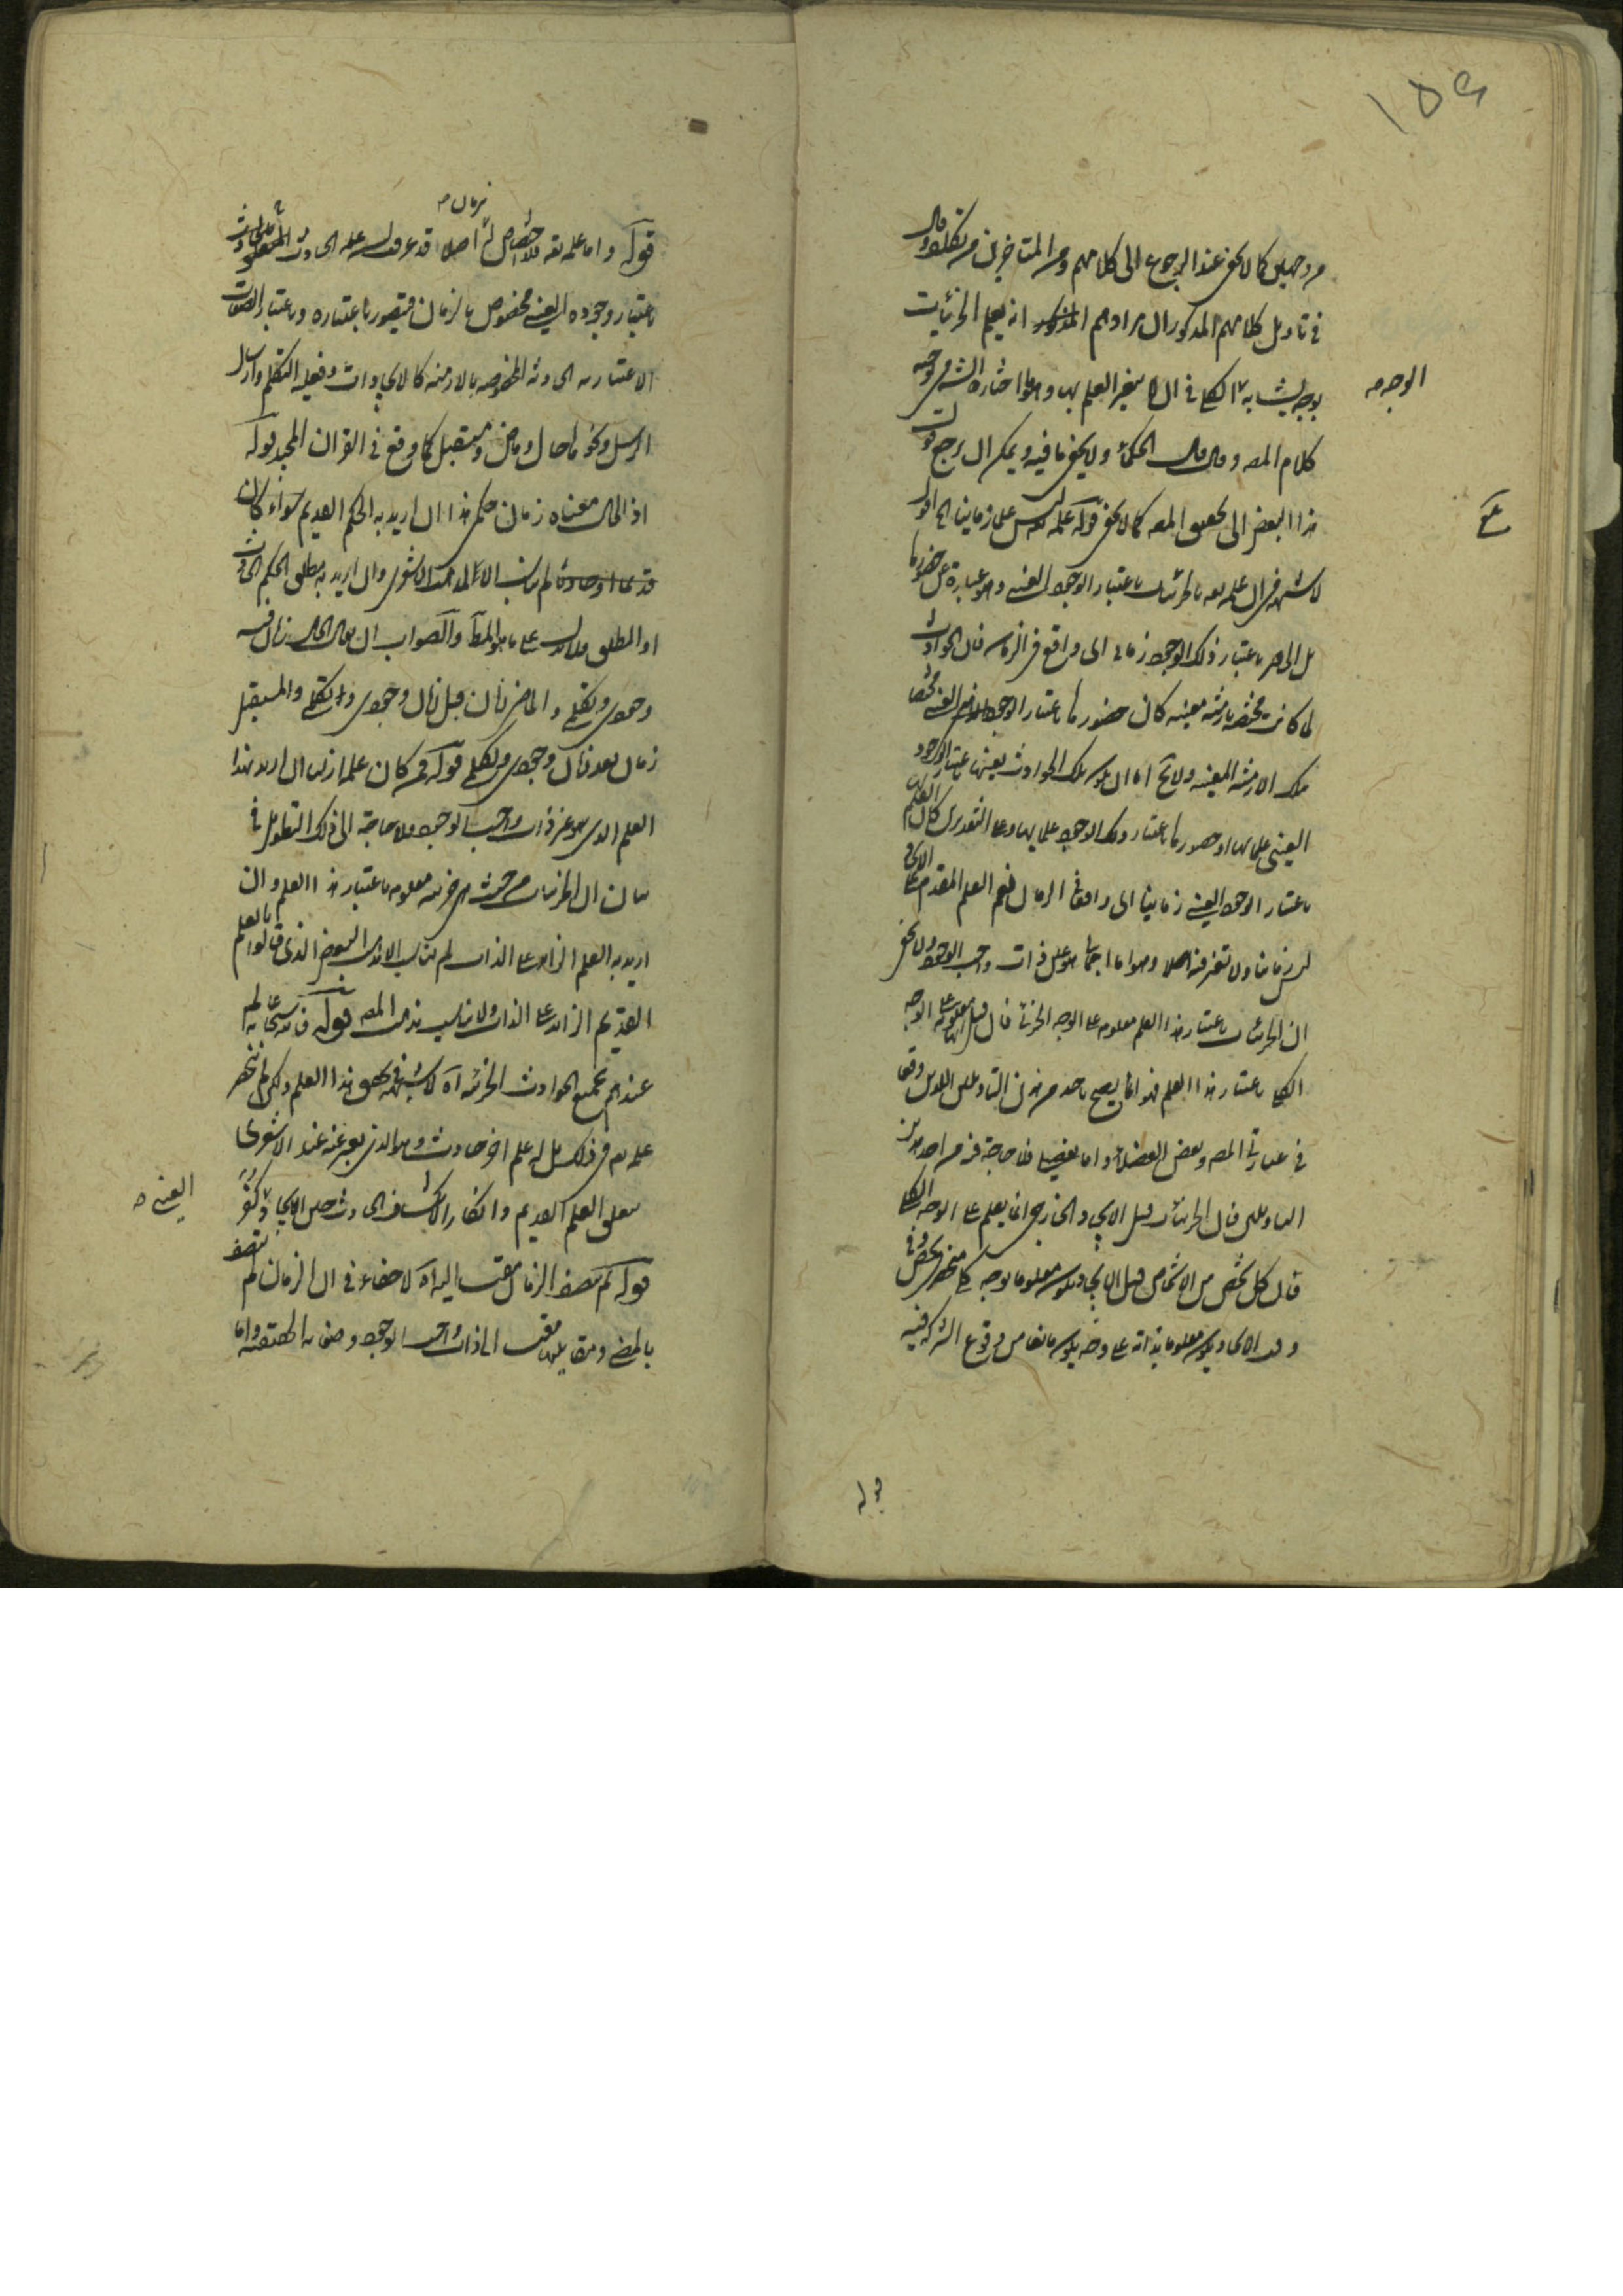 ١٥٩
من وجهين كما لا يخفى عند الرجوع الى كلامهم ومن المتأخرين من تكلف وقال
في تاويل كلامهم المذكور ان مرادهم انه يعلم الجزئيات
بوجه يشابه الكلي في ان لا يتغير العلم بها وهو ما اختاره الشه من توجيه
الوجه
كلام المص وقال قال الحكماء ولا يخفى ما فيه ويمكن ان يرجع
هذا البعض الى تحقيق المص كما لا يخفى قوله علمه ليس علما زمانيا اقول
لا شبهة في ان علمه تعه بالجزئيات باعتبار الوجود العيني وهو عبارة عن حضورها
بل الحاضر باعتبار ذلك الوجود زماني اى واقع في الزمان فان الحوادث
لما كانت مختصة بازمنة معينة كان حضورها باعتبار الوجود العيني مختصا
بتلك الازمنة المعينة ولا يخ اما ان يكون تلك الحوادث بعينها باعتبار الوجود
العيني علما بها او حضورها باعتبار ذلك الوجود علما بها وعلى التقديرين كان العلم
باعتبار الوجود العيني زمانيا اى واقعا في الزمان نعم العلم المقدم على الايجاد
ليس زمانيا ولا تغير فيه اصلا وهو اما اجمالي هو عين ذات واجب الوجود ولا يخفى
ان الجزئيات باعتبار هذا العلم معلومة على الوجه الجزئي فان قيل انها معلومة على الوجه
الكلي باعتبار هذا العلم فهو انما يصح باحد من هذين التاويلين اللذين وقعا
في عبارتي المص وبعض الفضلاء واما تفصيلي فلا حاجة فيه من احد هذين
التاويلين فان الجزئيات قبل الايجاد في الخارج انما يعلم على الوجه الكلي
فان كل شخص من الاشخاص قبل الايجاد يكون معلوما بوجه كلي منحصر في شخص
وبعد الايجاد يكون معلوما بذاته على وجه يكون مانعا من وقوع الشركة فيه
قوله
قوله واما علمه تعه فلا اختصاص له بزمان اصلا قد عرفت ان علمه الحادث
باعتبار وجوده العيني مخصوص بالزمان فيتصور باعتباره وباعتبار الصفات
الاعتبارية الحادثة المخصوصة بالازمنة كالايجادات وفعلية التكلم وارسال
الرسل ونحوها حال وماض ومستقبل كما وقع في القران المجيد قوله
اذ الحال معناه زمان حكمي هذا ان اريد به الحكم القديم سواء كان
قديما او حادثا لم يناسب الا لمذهب الاشعري وان اريد به مطلق الحكم الحادث
او المطلق فلا يدل على ما هو المط والصواب ان يقال الحال زمان فيه
وجودي وتكلمي والماضي زمان قبل زمان وجودي وتكلمي والمستقبل
زمان بعد زمان وجودي وتكلمي قوله فمن كان علمه ازليا ان اريد بهذا
العلم الذي هو عين ذات واجب الوجود فلا حاجة الى ذلك التطويل في
بيان ان الجزئيات من حيث هي جزئية معلومة باعتبار هذا العلم وان
اريد به العلم الزايد على الذات لم يناسب الا لمذهب البعض الذي قالوا بالعلم
القديم الزايد على الذات ولا يناسب مذهب المص قوله فانه سبحانه عالم
عندهم بجميع الحوادث الجزئية اه لا شبهة في تحقق هذا العلم ولكن لم ينحصر
علمه تعه في ذلك بل له علم اخر حادث وهو الذي يعبر عنه عند الاشعري
بتعلق العلم القديم وانكار الانكشاف الحادث حين الايجاد كفر
العيني
قوله لم يتصف الزمان مقيسا اليه اه لا خفاء في ان الزمان لم يتصف
بالمضي ومقابليه مقيسا الى ذات واجب الوجود وصفاته الحقيقية واما